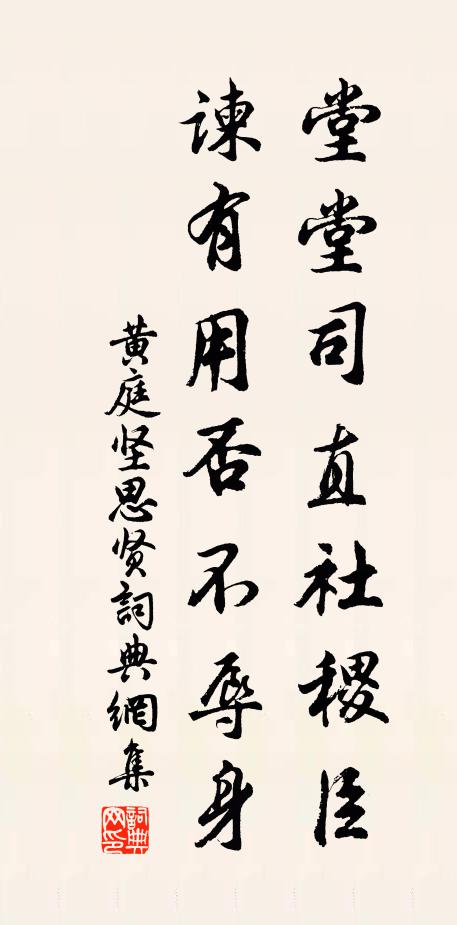 堂堂司直社稷臣
諫有用否不辱身
黄庭坚思贤詞典網集
詞典
网印